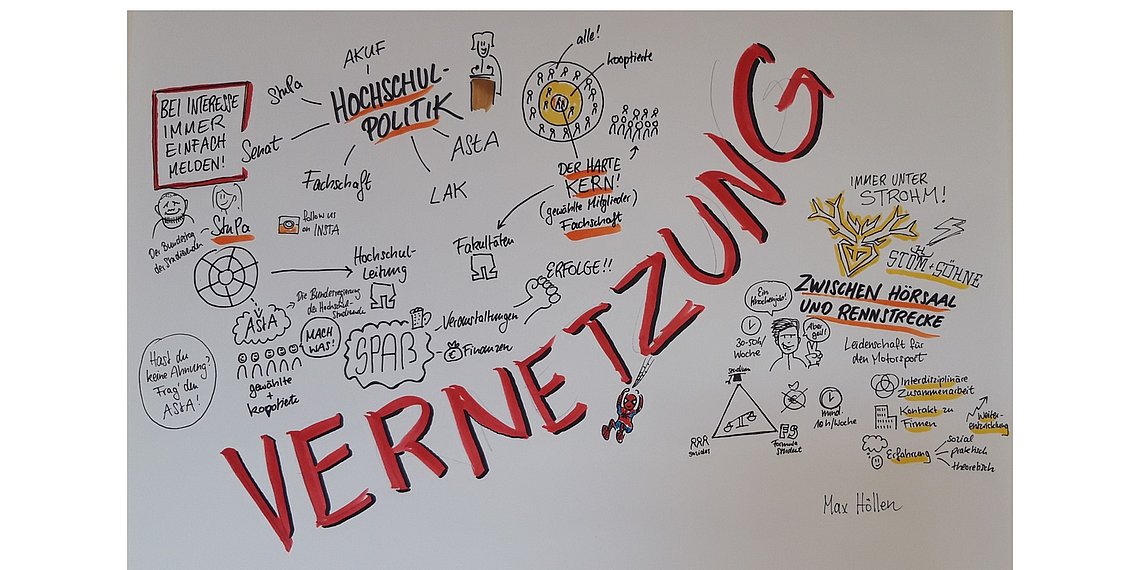 BEI INTERESSE
IMMER
EINFACH
MELDEN!
AKUF
StuPa
HOCHSCHUL-
POLITIK
Senat
AStA
Fachschaft
LAK
alle!
kooptierte
DER HARTE
KERN!
(gewählte Mitglieder)
Fachschaft
Fakultäten
StuPa
Der Bundestag
der Studierenden
follow us
on INSTA
Hochschul-
Leitung
AStA
Die Bundesregierung
der Hochschul-
MACH
WAS!
gewählte
+
kooptierte
Hast du
keine Ahnung?
Frag' den
AStA!
SPAß
ERFOLGE!!
Veranstaltungen
€ Finanzen
VERNETZUNG
IMMER UNTER
STROHM!
+ SÖHNE
ZWISCHEN HÖRSAAL
UND RENNSTRECKE
Ein
Aber
geil!
30-50h/
Woche
Leidenschaft für
den Motorsport
studium
RRR
FS
Formula
Student
mind.
10h/Woche
Interdisziplinäre
Zusammenarbeit
Kontakt zu
Firmen
Weiter-
entwicklung
Erfahrung
sozial
praktisch
theoretisch
Max Höllen